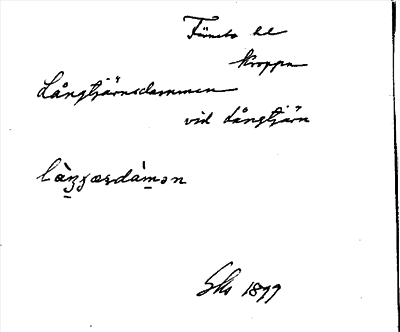 Färnebo hd
Kroppa
Långtjärnsdammen
vid Långtjärn
làŋʒærdàmən
Sks 1899